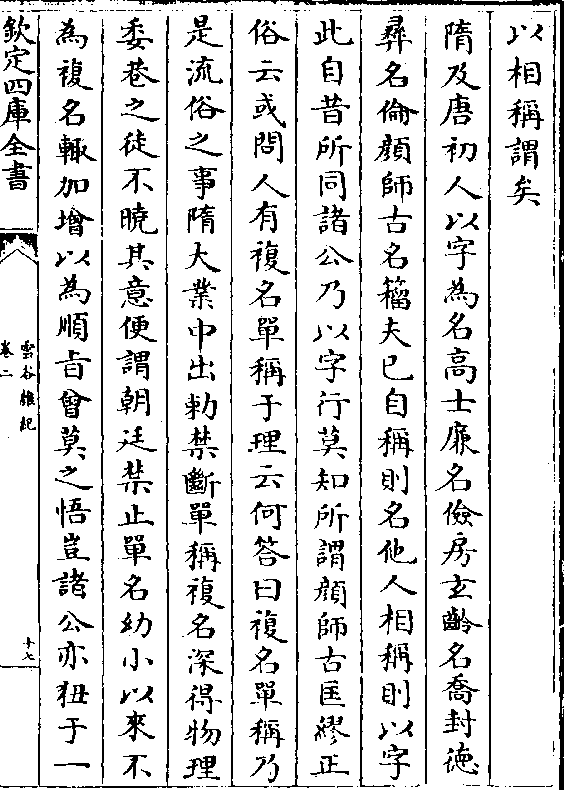 以相稱謂矣
隋及唐初人以字為名高士亷名儉房玄齡名喬封徳
彛名倫顔師古名籀夫已自稱則名他人相稱則以字
此自昔所同諸公乃以字行莫知所謂顔師古匡繆正
俗云或問人有複名單稱于理云何答曰複名單稱乃
是流俗之事隋大業中出勅禁斷單稱複名深得物理
委巷之徒不曉其意便謂朝廷禁止單名幼小以來不
為複名輙加增以為順㫖曾莫之悟豈諸公亦狃于一
欽定四庫全書
雲谷雜紀
卷二
十七